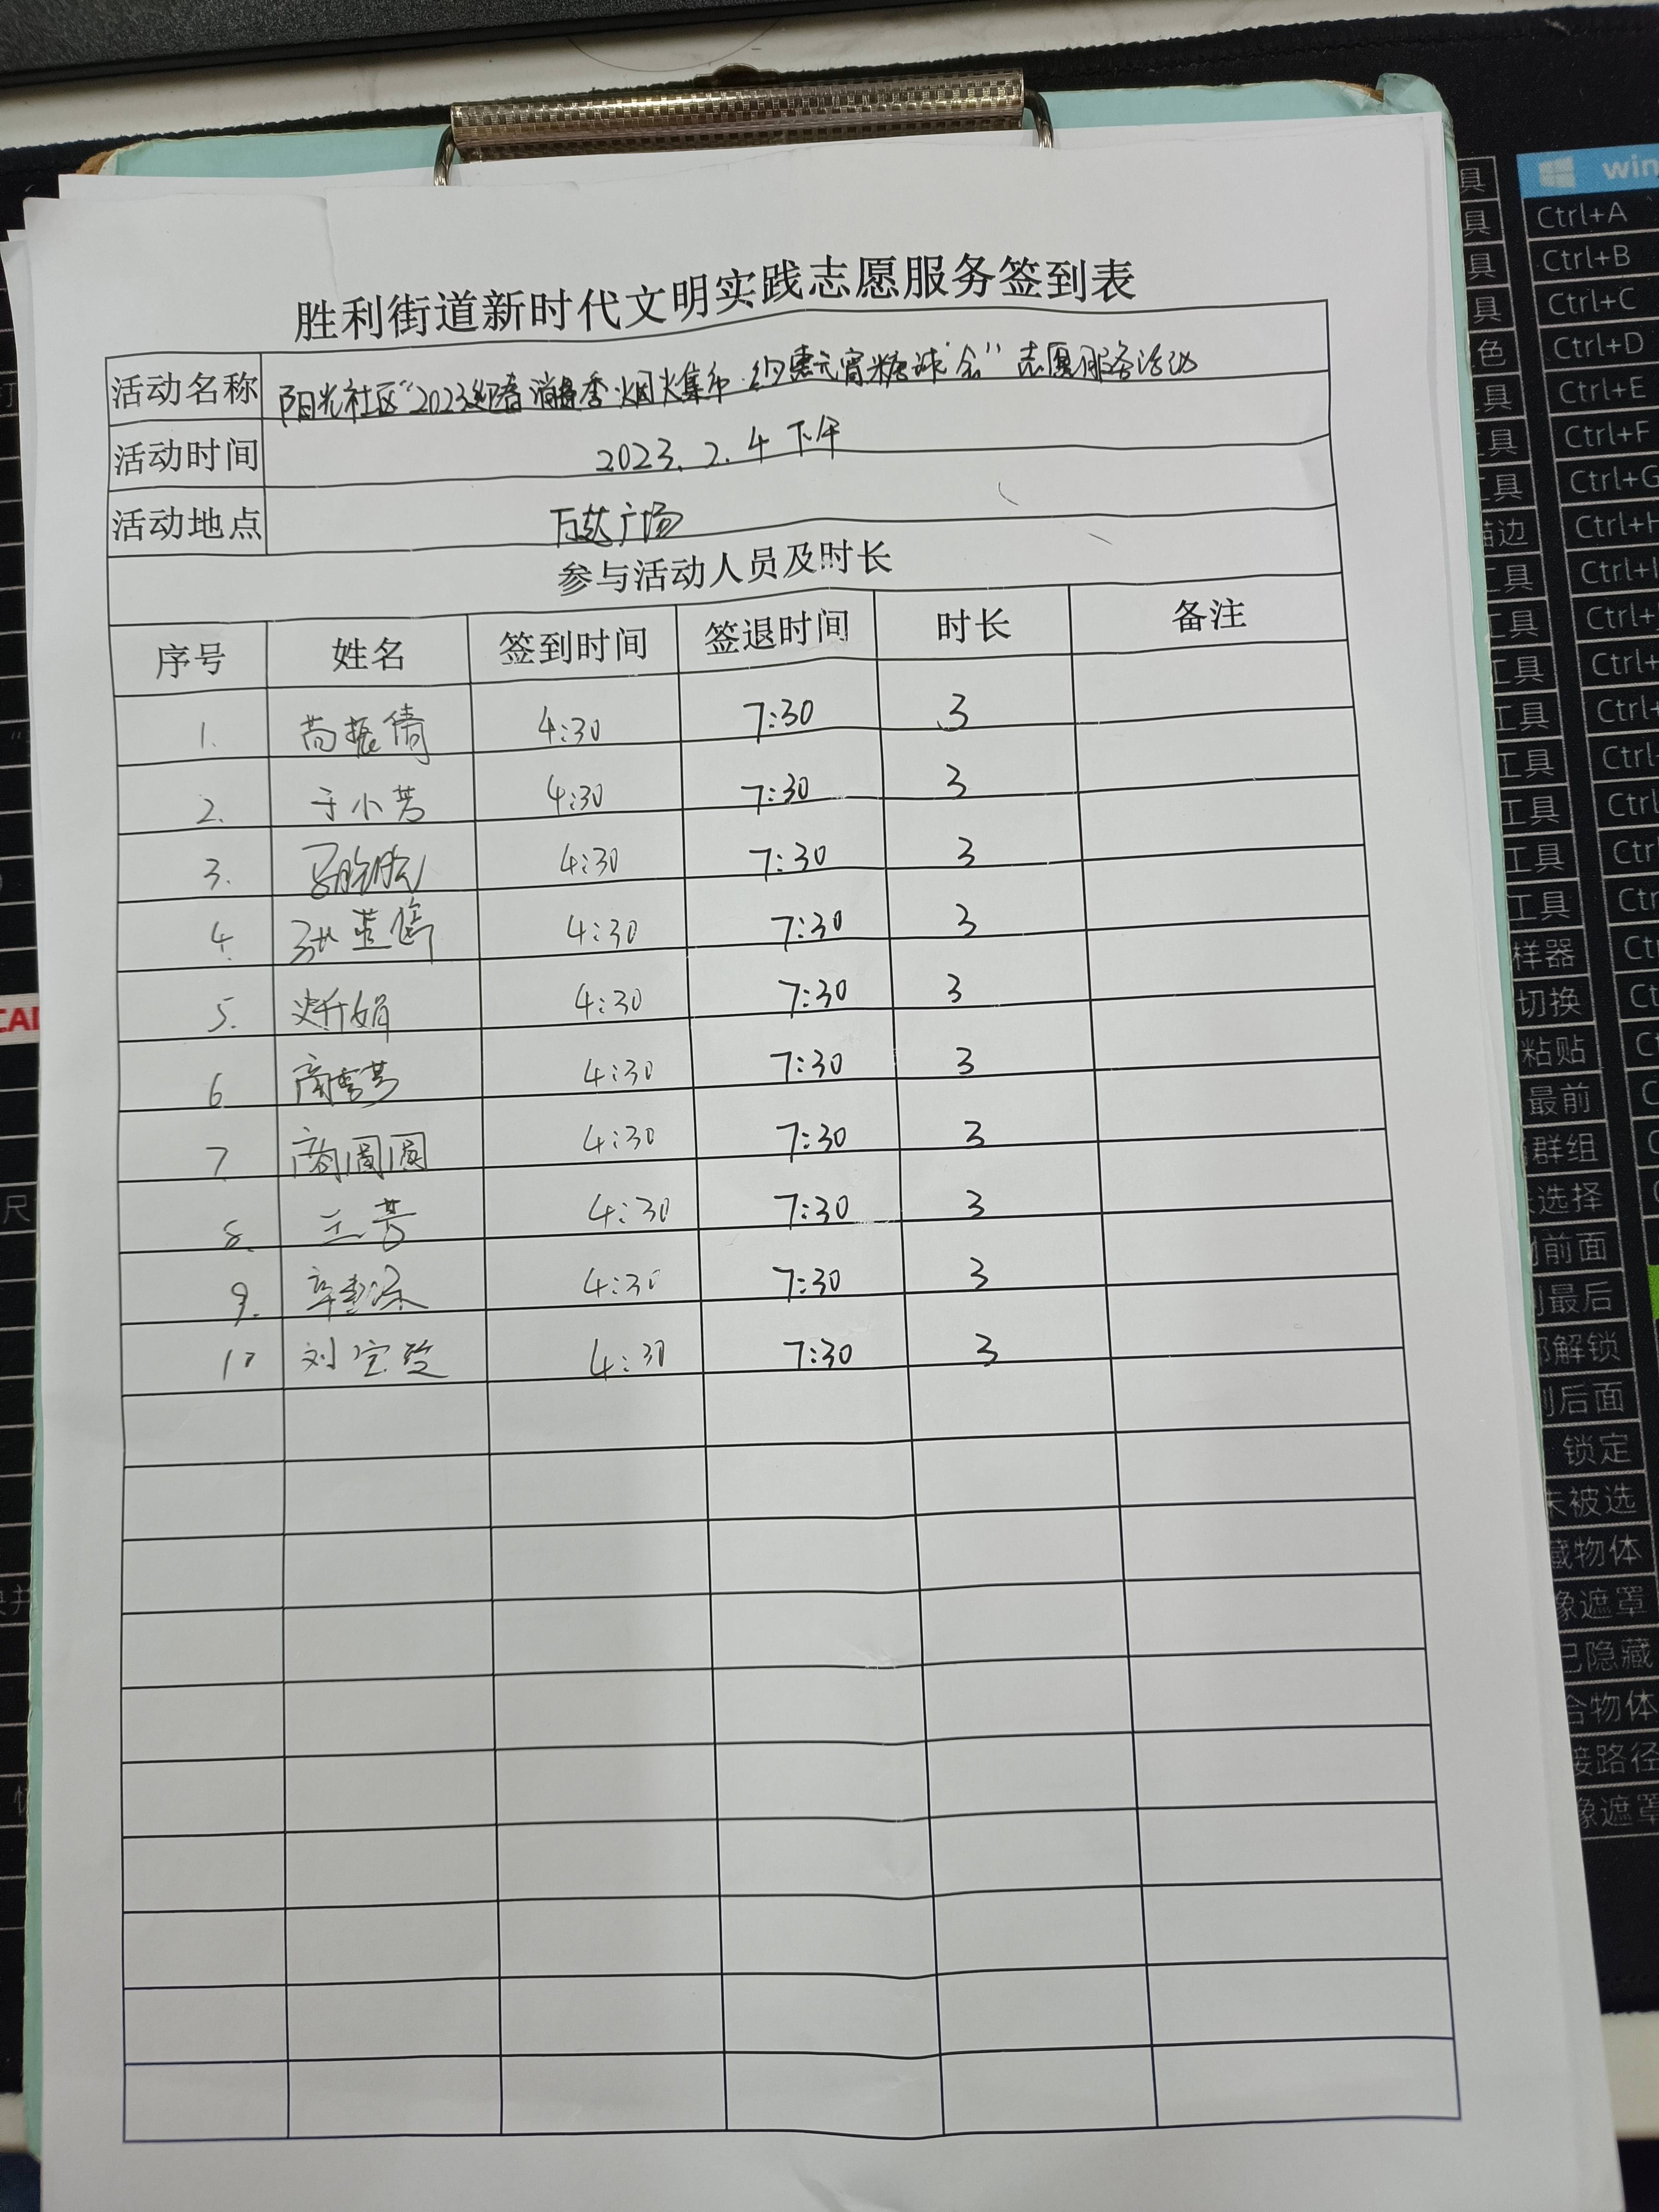 胜利街道新时代文明实践志愿服务签到表
活动名称 阳光社区"2023迎春消费季·烟火集市·约惠元宵糖球会"志愿服务活动
活动时间 2023.2.4下午
活动地点 万达广场
参与活动人员及时长
序号 姓名 签到时间 签退时间 时长 备注
1. 苘振倩 4:30 7:30 3
2. 于小芳 4:30 7:30 3
3. 4:30 7:30 3
4. 4:30 7:30 3
5. 4:30 7:30 3
6 商雪芳 4:30 7:30 3
7 商圆圆 4:30 7:30 3
8. 王芳 4:30 7:30 3
9. 4:30 7:30 3
10 刘宝莹 4:30 7:30 3
win
Ctrl+A
Ctrl+B
Ctrl+C
Ctrl+D
Ctrl+E
Ctrl+F
Ctrl+G
Ctrl+H
Ctrl+I
描边
工具
工具
工具
工具
工具
工具
工具
工具
样器
切换
粘贴
最前
群组
选择
前面
最后
解锁
后面
锁定
未被选
藏物体
像遮罩
已隐藏
合物体
接路径
像遮罩